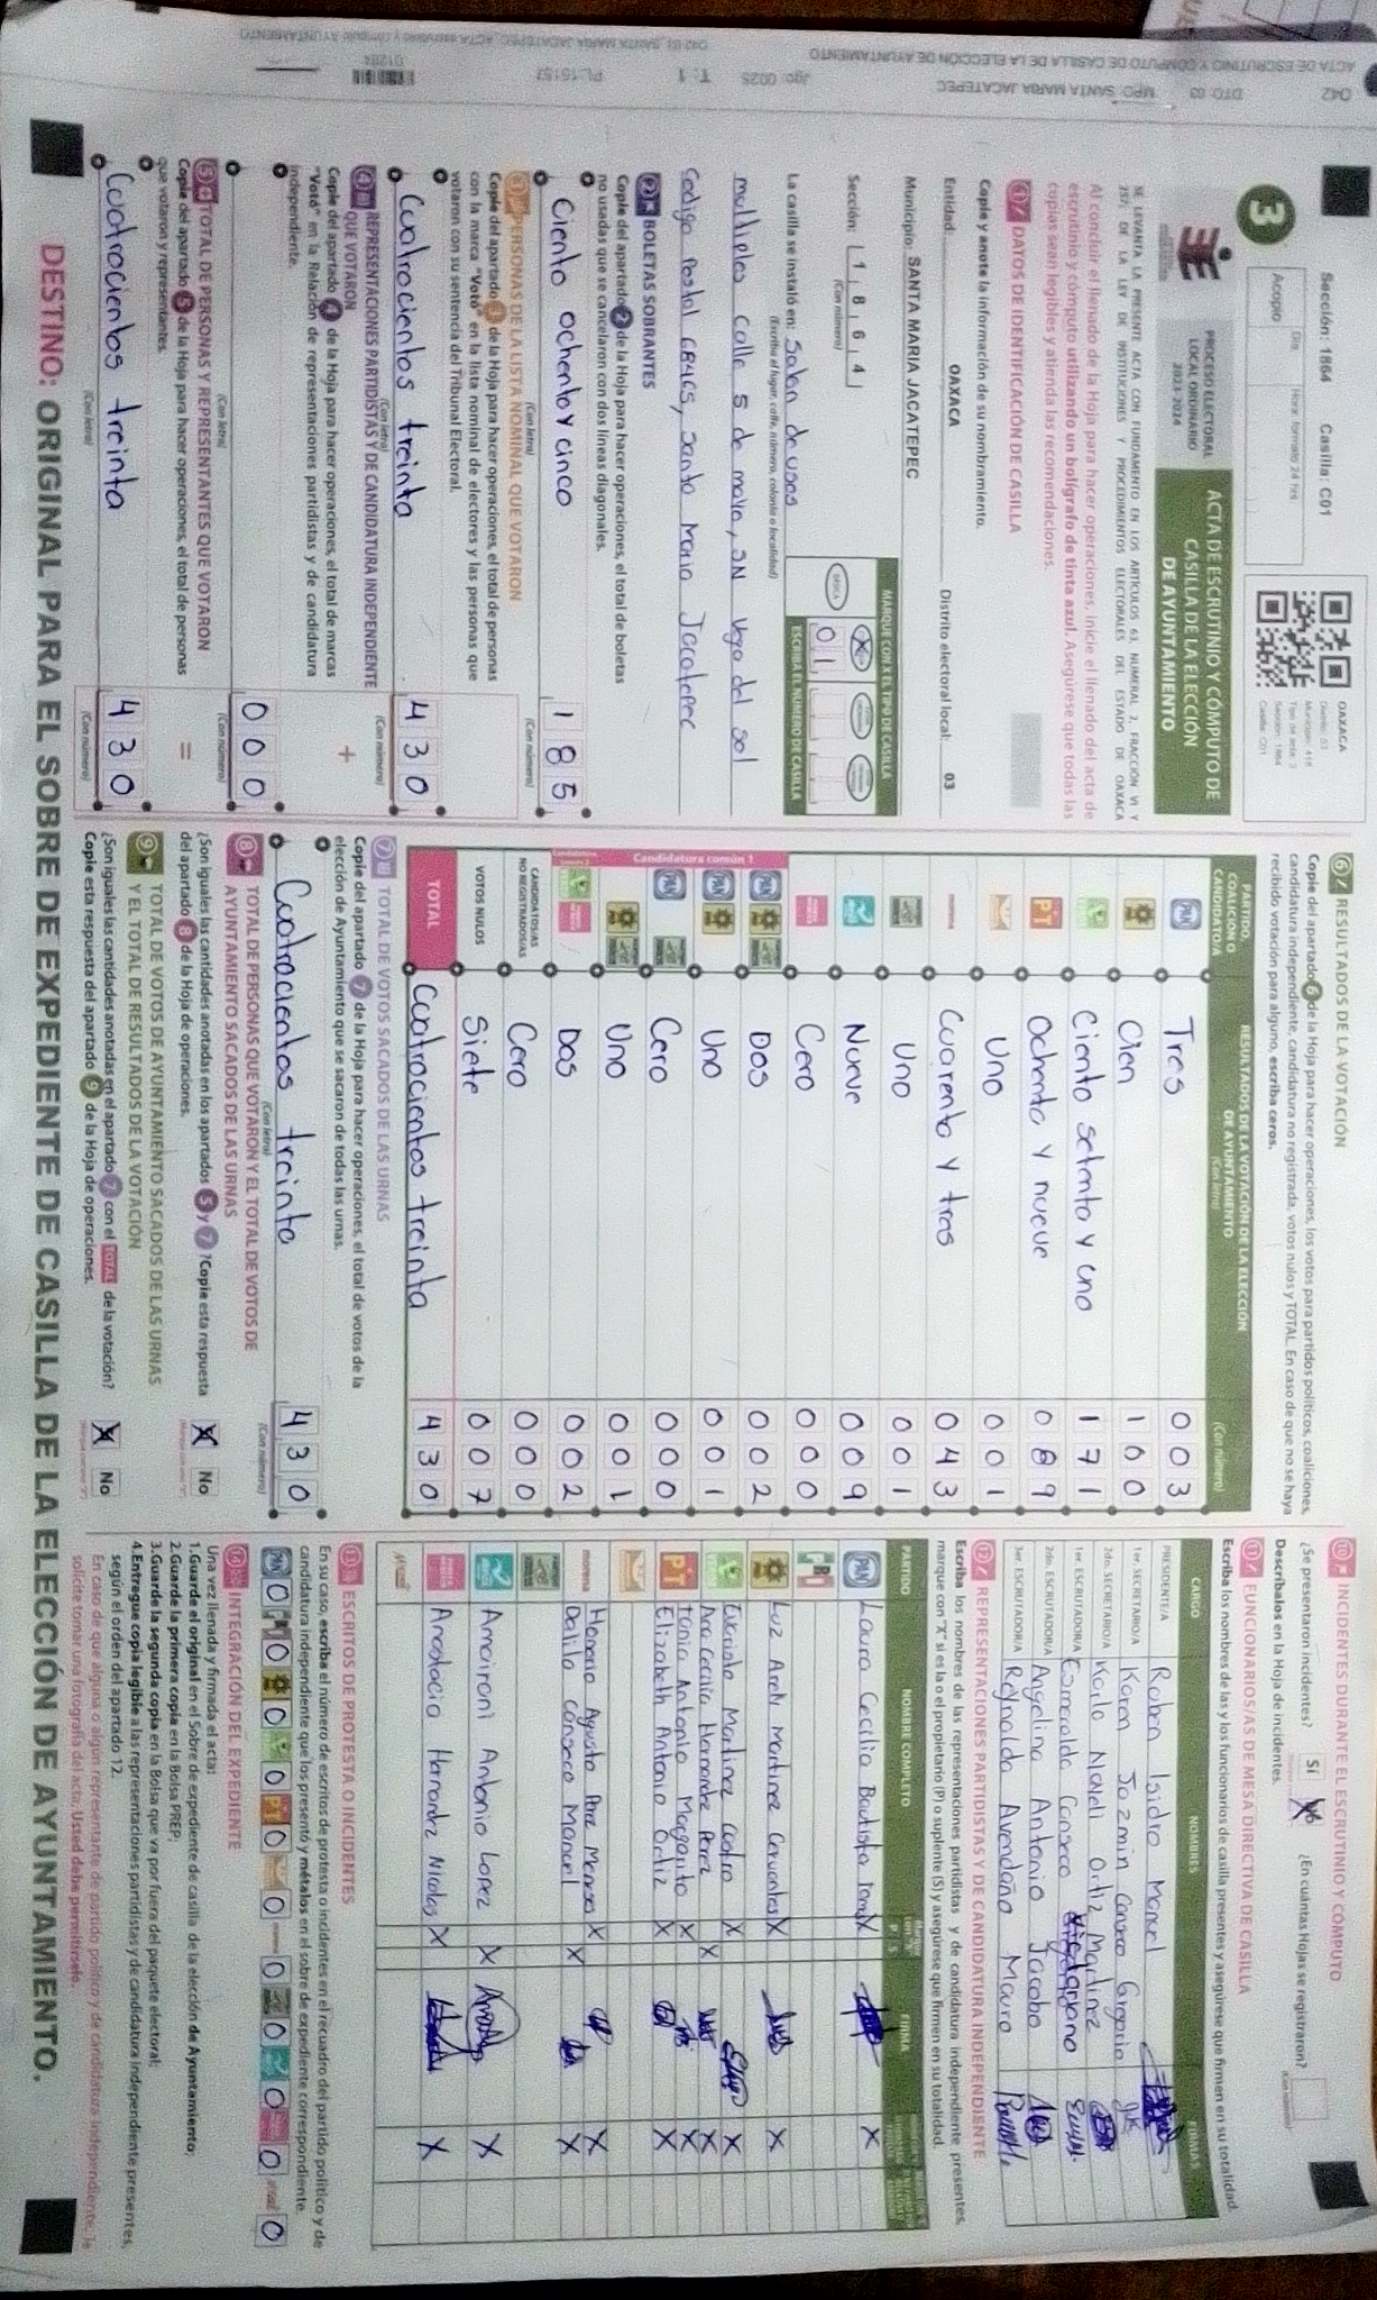 Sección: 1864 Casilla: C01
OAXACA
3
Acopio
PROCESO ELECTORAL
LOCAL ORDINARIO
2023-2024
ACTA DE ESCRUTINIO Y CÓMPUTO DE
CASILLA DE LA ELECCIÓN
DE AYUNTAMIENTO
SE LEVANTA LA PRESENTE ACTA CON FUNDAMENTO EN LOS ARTÍCULOS 63, NUMERAL 2, FRACCIÓN VI Y
257; DE LA LEY DE INSTITUCIONES Y PROCEDIMIENTOS ELECTORALES DEL ESTADO DE OAXACA
Al concluir el llenado de la Hoja para hacer operaciones, inicie el llenado del acta de
escrutinio y cómputo utilizando un bolígrafo de tinta azul. Asegúrese que todas las
copias sean legibles y atienda las recomendaciones.
1 DATOS DE IDENTIFICACIÓN DE CASILLA
Copie y anote la información de su nombramiento.
Entidad: OAXACA Distrito electoral local: 03
Municipio: SANTA MARIA JACATEPEC
Sección: 1 8 6 4
(Con número)
MARQUE CON X EL TIPO DE CASILLA
X
ESCRIBA EL NÚMERO DE CASILLA
0 1
La casilla se instaló en: Salon de usos
(Escriba el lugar, calle, número, colonia o localidad)
multiples calle 5 de mallo, SN Vega del sol
Codigo Postal 68465, Santa Maria Jacatepec
2 BOLETAS SOBRANTES
Copie del apartado 2 de la Hoja para hacer operaciones, el total de boletas
no usadas que se cancelaron con dos líneas diagonales.
Ciento ochenta y cinco 1 8 5
(Con letra) (Con número)
3 PERSONAS DE LA LISTA NOMINAL QUE VOTARON
Copie del apartado 3 de la Hoja para hacer operaciones, el total de personas
con la marca "Votó" en la lista nominal de electores y las personas que
votaron con su sentencia del Tribunal Electoral.
Cuatrocientos treinta 4 3 0
(Con letra) (Con número)
4 REPRESENTACIONES PARTIDISTAS Y DE CANDIDATURA INDEPENDIENTE
QUE VOTARON
Copie del apartado 4 de la Hoja para hacer operaciones, el total de marcas
"Votó" en la Relación de representaciones partidistas y de candidatura
independiente.
+
0 0 0
(Con letra) (Con número)
5 TOTAL DE PERSONAS Y REPRESENTANTES QUE VOTARON
Copie del apartado 5 de la Hoja para hacer operaciones, el total de personas
que votaron y representantes.
=
Cuatrocientos treinta 4 3 0
(Con letra) (Con número)
6 RESULTADOS DE LA VOTACIÓN
Copie del apartado 6 de la Hoja para hacer operaciones, los votos para partidos políticos, coaliciones,
candidatura independiente, candidatura no registrada, votos nulos y TOTAL. En caso de que no se haya
recibido votación para alguno, escriba ceros.
PARTIDO, COALICIÓN O CANDIDATO/A
RESULTADOS DE LA VOTACIÓN DE LA ELECCIÓN DE AYUNTAMIENTO
(Con letra) (Con número)
PAN Tres 0 0 3
Cien 1 0 0
Ciento setenta y uno 1 7 1
PT Ochenta y nueve 0 8 9
Uno 0 0 1
Cuarenta y tres 0 4 3
Uno 0 0 1
Nueve 0 0 9
Cero 0 0 0
Candidatura común 1
PAN Dos 0 0 2
PAN Uno 0 0 1
PAN Cero 0 0 0
Uno 0 0 1
Dos 0 0 2
CANDIDATOS/AS NO REGISTRADOS/AS Cero 0 0 0
VOTOS NULOS Siete 0 0 7
TOTAL Cuatrocientos treinta 4 3 0
7 TOTAL DE VOTOS SACADOS DE LAS URNAS
Copie del apartado 7 de la Hoja para hacer operaciones, el total de votos de la
elección de Ayuntamiento que se sacaron de todas las urnas.
Cuatrocientos treinta 4 3 0
(Con letra) (Con número)
8 TOTAL DE PERSONAS QUE VOTARON Y EL TOTAL DE VOTOS DE
AYUNTAMIENTO SACADOS DE LAS URNAS
¿Son iguales las cantidades anotadas en los apartados 5 y 7? Copie esta respuesta
del apartado 8 de la Hoja de operaciones.
X No
9 TOTAL DE VOTOS DE AYUNTAMIENTO SACADOS DE LAS URNAS
Y EL TOTAL DE RESULTADOS DE LA VOTACIÓN
¿Son iguales las cantidades anotadas en el apartado 7 con el TOTAL de la votación?
Copie esta respuesta del apartado 9 de la Hoja de operaciones.
X No
10 INCIDENTES DURANTE EL ESCRUTINIO Y CÓMPUTO
¿Se presentaron incidentes? Sí X ¿En cuántas Hojas se registraron?
Descríbalos en la Hoja de incidentes.
11 FUNCIONARIOS/AS DE MESA DIRECTIVA DE CASILLA
Escriba los nombres de las y los funcionarios de casilla presentes y asegúrese que firmen en su totalidad.
CARGO NOMBRES FIRMAS
PRESIDENTE/A Ruben Isidro Manuel
1er. SECRETARIO/A Karen Jazmin Canseco Gregorio
2do. SECRETARIO/A Karla Nayeli Ortiz Martinez
1er. ESCRUTADOR/A Esmeralda Canseco
2do. ESCRUTADOR/A Angelina Antonio Jacobo
3er. ESCRUTADOR/A Reynalda Avendaño Mauro
12 REPRESENTACIONES PARTIDISTAS Y DE CANDIDATURA INDEPENDIENTE
Escriba los nombres de las representaciones partidistas y de candidatura independiente presentes,
marque con "X" si es la o el propietario (P) o suplente (S) y asegúrese que firmen en su totalidad.
PARTIDO NOMBRE COMPLETO FIRMA
PAN Laura Cecilia Bautista X X
PRI
Luz Areli Martinez Cervantes X X
Martinez Castro X X
Ana Cecilia Hernandez Perez X X
PT Tania Antonio Margarito X X
Elizabeth Antonio Ortiz X X
morena Honorio Agusto Perez Meneses X X
Dalila Canseco Manuel X X
Amaironi Antonio Lopez X X
Anastacio Hernandez Nicolas X X
13 ESCRITOS DE PROTESTA O INCIDENTES
En su caso, escriba el número de escritos de protesta o incidentes en el recuadro del partido político y de
candidatura independiente que los presentó y métalos en el sobre de expediente correspondiente.
PAN 0 0 0 0 PT 0 0 0 0 0 0 0
14 INTEGRACIÓN DEL EXPEDIENTE
Una vez llenada y firmada el acta:
1.Guarde el original en el Sobre de expediente de casilla de la elección de Ayuntamiento;
2.Guarde la primera copia en la Bolsa PREP;
3.Guarde la segunda copia en la Bolsa que va por fuera del paquete electoral;
4.Entregue copia legible a las representaciones partidistas y de candidatura independiente presentes,
según el orden del apartado 12.
En caso de que alguna o algún representante de partido político y de candidatura independiente, le
solicite tomar una fotografía del acta, Usted debe permitírselo.
DESTINO: ORIGINAL PARA EL SOBRE DE EXPEDIENTE DE CASILLA DE LA ELECCIÓN DE AYUNTAMIENTO.
042 DTO: 03 MPO: SANTA MARIA JACATEPEC
ACTA DE ESCRUTINIO Y CÓMPUTO DE CASILLA DE LA ELECCIÓN DE AYUNTAMIENTO